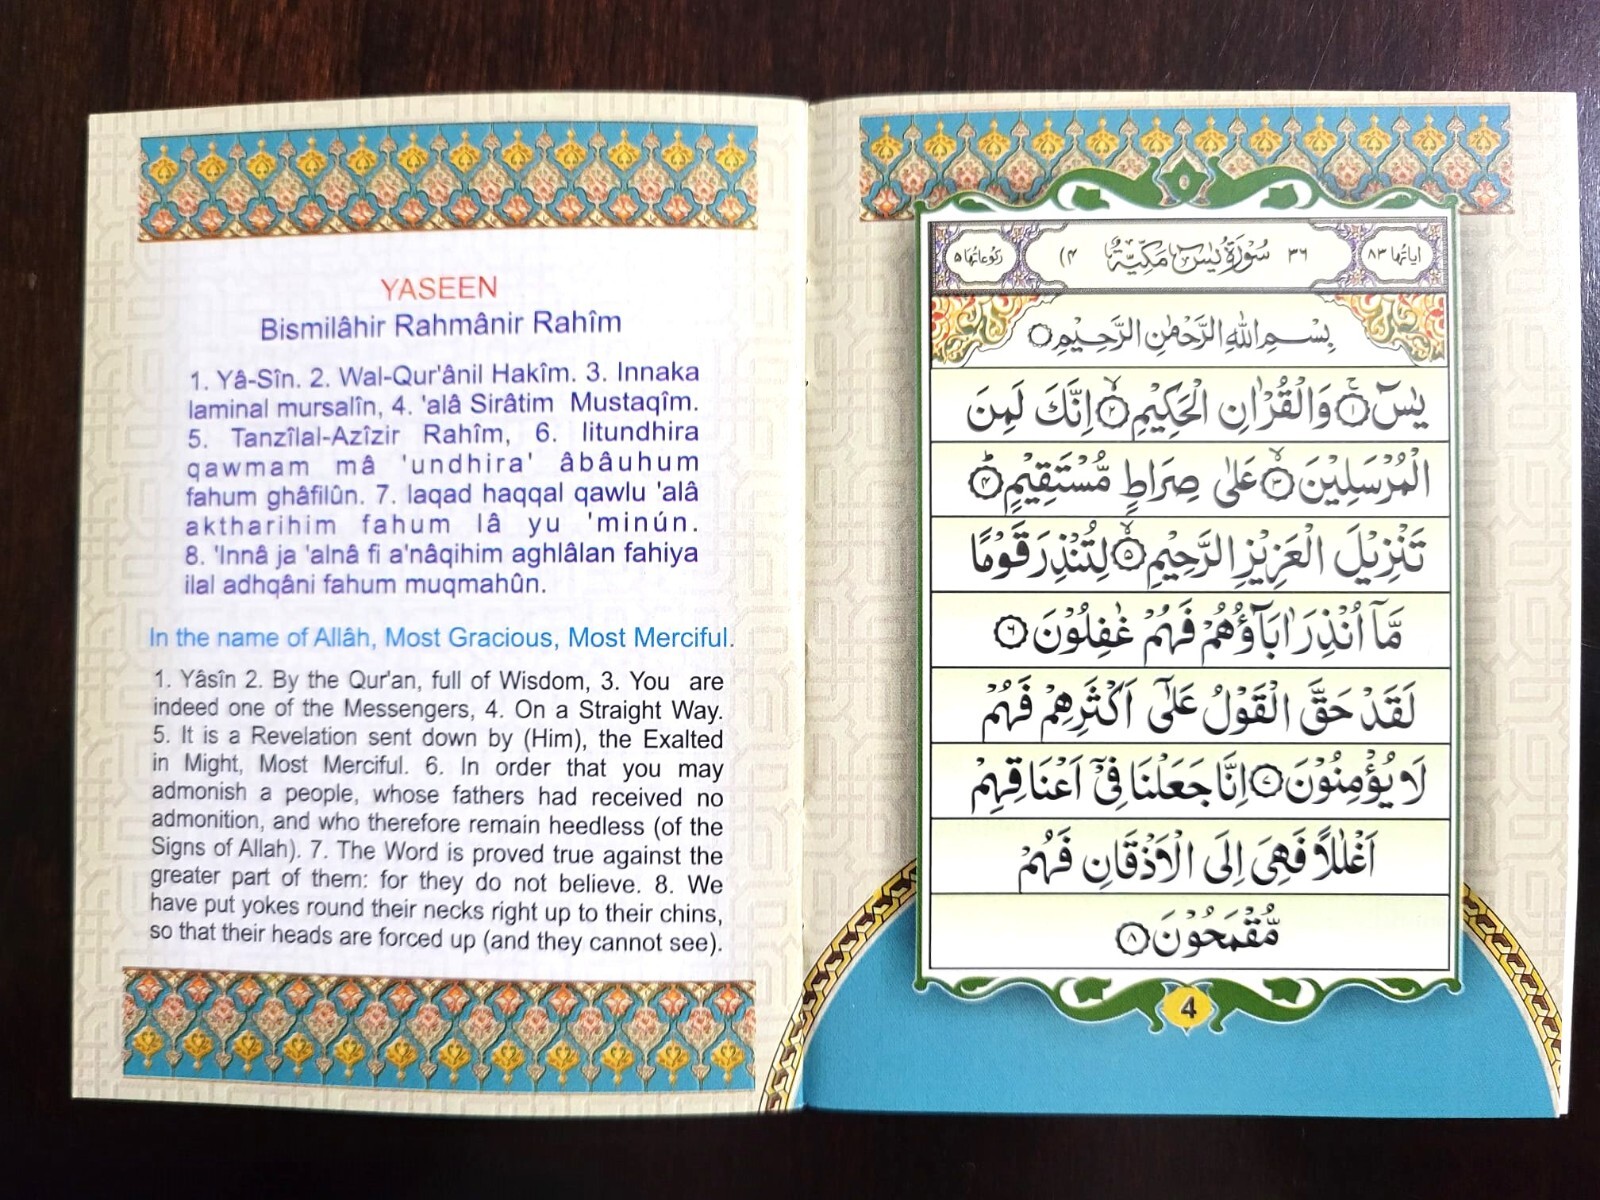 YASEEN
Bismilâhir Rahmânir Rahîm
1. Yâ-Sîn. 2. Wal-Qur'ânil Hakîm. 3. Innaka
laminal mursalîn, 4. 'alâ Sirâtim Mustaqîm.
5. Tanzîlal-Azîzir Rahîm, 6. litundhira
qawmam mâ 'undhira' âbâuhum
fahum ghâfilûn. 7. laqad haqqal qawlu 'alâ
aktharihim fahum lâ yu 'minún.
8. 'Innâ ja 'alnâ fi a'nâqihim aghlâlan fahiya
ilal adhqâni fahum muqmahûn.
In the name of Allâh, Most Gracious, Most Merciful.
1. Yâsîn 2. By the Qur'an, full of Wisdom, 3. You are
indeed one of the Messengers, 4. On a Straight Way.
5. It is a Revelation sent down by (Him), the Exalted
in Might, Most Merciful. 6. In order that you may
admonish a people, whose fathers had received no
admonition, and who therefore remain heedless (of the
Signs of Allah). 7. The Word is proved true against the
greater part of them: for they do not believe. 8. We
have put yokes round their necks right up to their chins,
so that their heads are forced up (and they cannot see).
اٰیاتُہَا ۸۳ ۳۶ سُوْرَةُ یٰسٓ مَکِّیَّةٌ ۴۱ رُکُوْعَاتُہَا ۵
بِسْمِ اللّٰهِ الرَّحْمٰنِ الرَّحِیْمِ
یٰسٓ ۱ وَالْقُرْاٰنِ الْحَكِیْمِ ۲ اِنَّكَ لَمِنَ
الْمُرْسَلِیْنَ ۳ عَلٰی صِرَاطٍ مُّسْتَقِیْمٍ ۴
تَنْزِیْلَ الْعَزِیْزِ الرَّحِیْمِ ۵ لِتُنْذِرَ قَوْمًا
مَّاۤ اُنْذِرَ اٰبَآؤُهُمْ فَهُمْ غٰفِلُوْنَ ۶
لَقَدْ حَقَّ الْقَوْلُ عَلٰۤی اَكْثَرِهِمْ فَهُمْ
لَا یُؤْمِنُوْنَ ۷ اِنَّا جَعَلْنَا فِیْۤ اَعْنَاقِهِمْ
اَغْلٰلًا فَهِیَ اِلَی الْاَذْقَانِ فَهُمْ
مُّقْمَحُوْنَ ۸
4